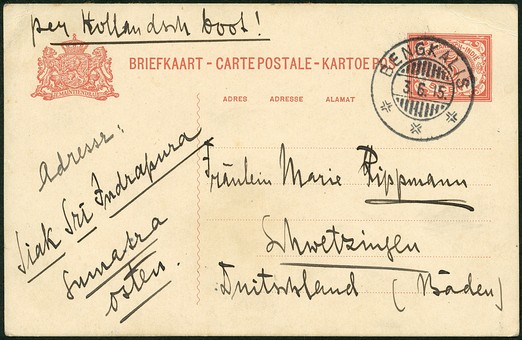 per Hollandsch boot!
BRIEFKAART - CARTE POSTALE - KARTOE POS
ADRES ADRESSE ALAMAT
BENGKALIS
3.6.15.
Adresse:
Siak Sri Indrapura
Sumatra
Osten.
Fräulein Marie Rippmann
Schwetzingen
Duitschland (Baden)